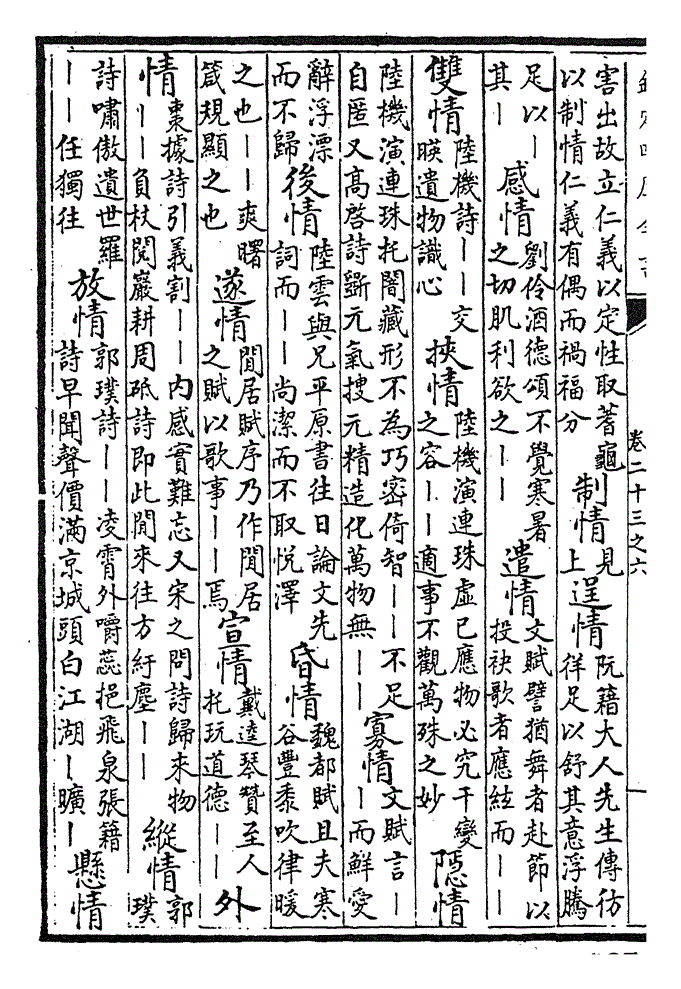 欽定四庫全書 卷二十三之六
害出故立仁義以定性取蓍龜以制情仁義有偶而禍福分 制情 見上 逞情 阮籍大人先生傳彷徉足以舒其意浮騰
足以丨其丨 感情 劉伶酒德頌不覺寒暑之切肌利欲之丨丨 遣情 文賦譬猶舞者赴節以投袂歌者應絃而丨丨
雙情 陸機詩丨丨交暎遺物識心 挾情 陸機演連珠虛已應物必究千變之容丨丨適事不觀萬殊之妙 隱情
陸機演連珠托闇藏形不為巧密倚智丨丨不足自匿又高啓詩斵元氣搜元精造化萬物無丨丨 寡情 文賦言丨丨而鮮愛
辭浮漂而不歸 後情 陸雲與兄平原書往日論文先詞而丨丨尚潔而不取悅澤 昏情 魏都賦且夫寒谷豐黍吹律暖
之也丨丨爽曙箴規顯之也 遂情 閒居賦序乃作閒居之賦以歌事丨丨焉 宣情 戴逵琴贊至人托玩道德丨丨 外
情 棗據詩引義割丨丨內感實難忘又宋之問詩歸來物丨丨負杖閱巖耕周砥詩即此閒來往方紆塵丨丨 縱情 郭璞
詩嘯傲遺世羅丨丨任獨往 放情 郭璞詩丨丨凌霄外嚼蕊挹飛泉張籍詩早聞聲價滿京城頭白江湖丨曠丨 懸情